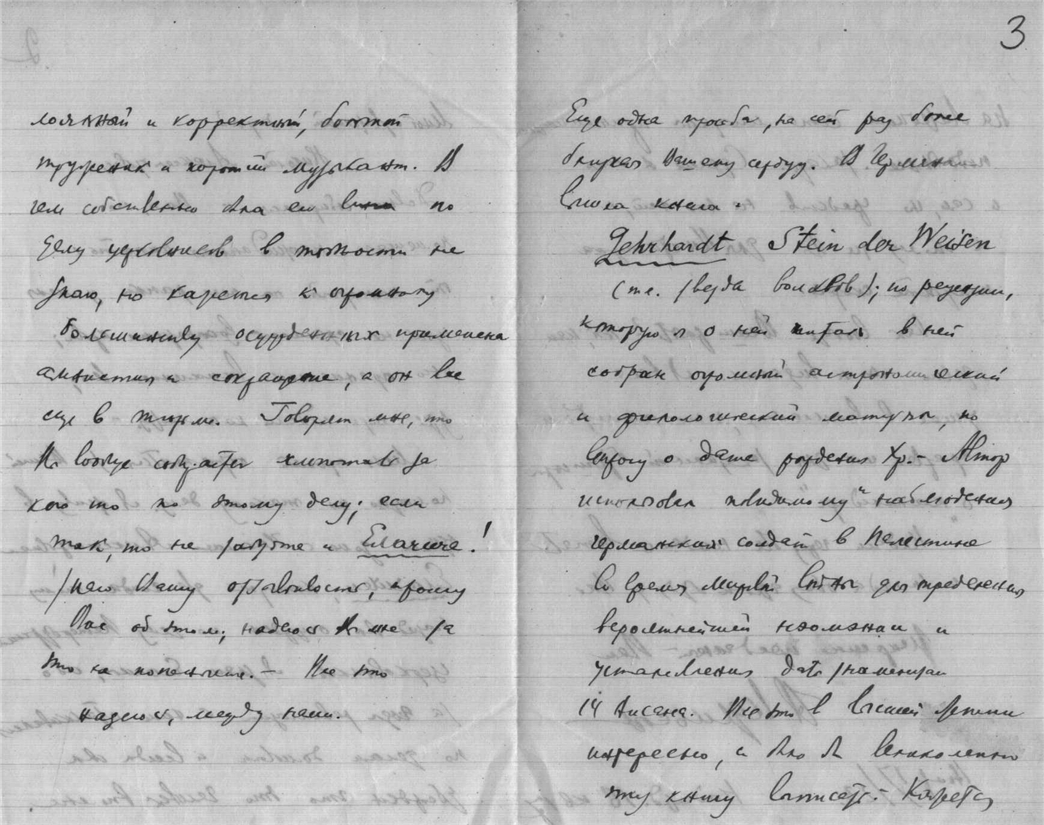 лояльный и корректный, большой
труженик и хороший музыкант. В
чем собственно была его вина по
делу церковников в точности не
знаю, но кажется к огромному
большинству осужденных применена
амнистия и сокращение, а он все
еще в тюрьме. Говорят мне, что
Вы вообще собираетесь хлопотать за
кого то по этому делу; если
так, то не забудьте и Елачича!
Зная Вашу отзывчивость, прошу
Вас об этом; надеюсь Вы мне за
это не попеняете. – Все это
надеюсь, между нами.
3
Еще одна просьба, на сей раз более
близкая Вашему сердцу. В Германии
вышла книга.
Gehrhardt Stein der Weisen
(т.е. звезда волхвов); по рецензии,
которую я о ней читал в ней
собран огромный астрономический
и филологический материал, по
вопросу о дате рождения Хр. – Автор
использовал повидимому наблюдения
германских солдат в Палестине
во время мировой войны для определения
вероятнейшей неомении и
установления даты знаменитого
14 Нисана. Все это в высшей степени
интересно, и было бы великолепно
эту книгу выписать. Кажется